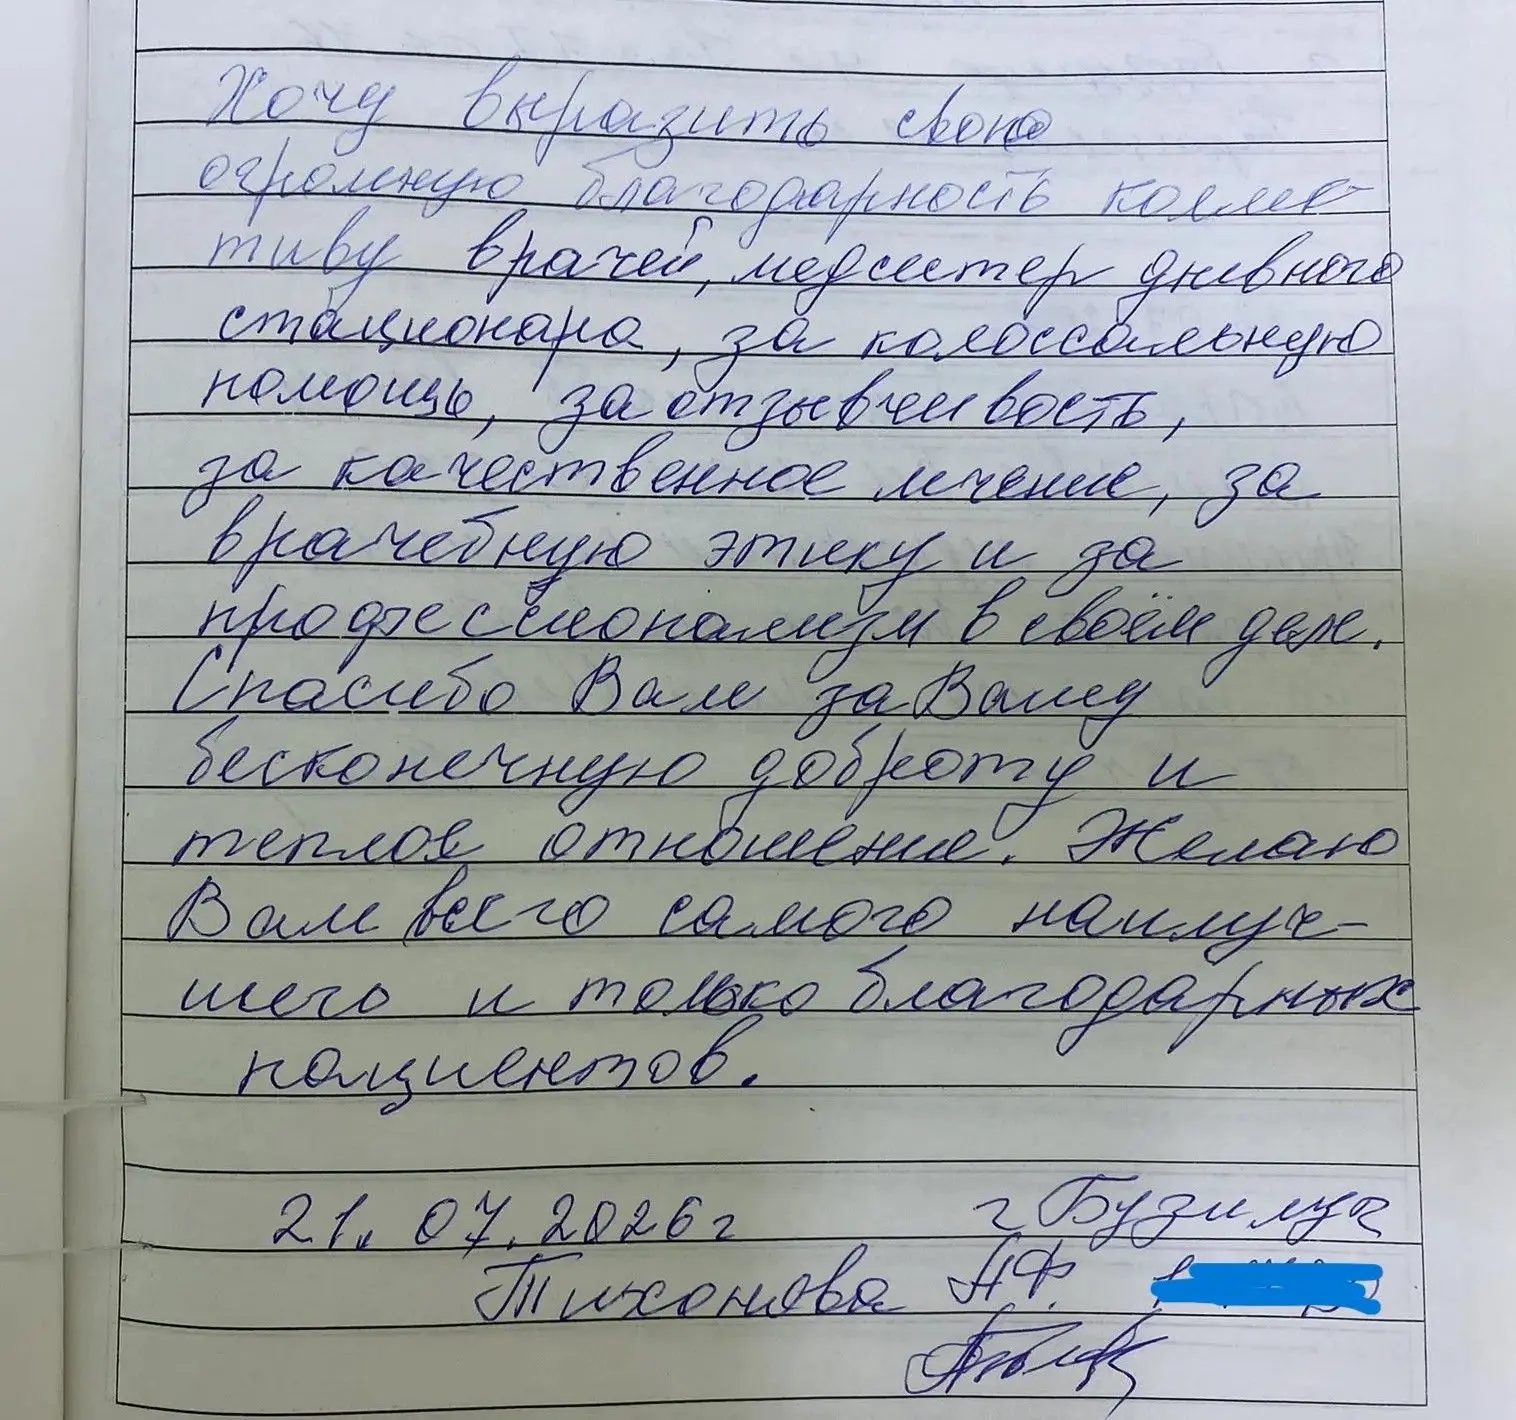 Хочу выразить свою
огромную благодарность коллек-
тиву врачей, медсистер дневного
стационара, за колоссальную
помощь, за отзывчивость,
за качественное лечение, за
врачебную этику и за
профессионализм в своём деле.
Спасибо Вам за Вашу
бесконечную доброту и
теплое отношение. Желаю
Вам всего самого наилуч-
шего и только благодарных
пациентов.
21.07.2026г г Бузулук
Тихонова АФ.